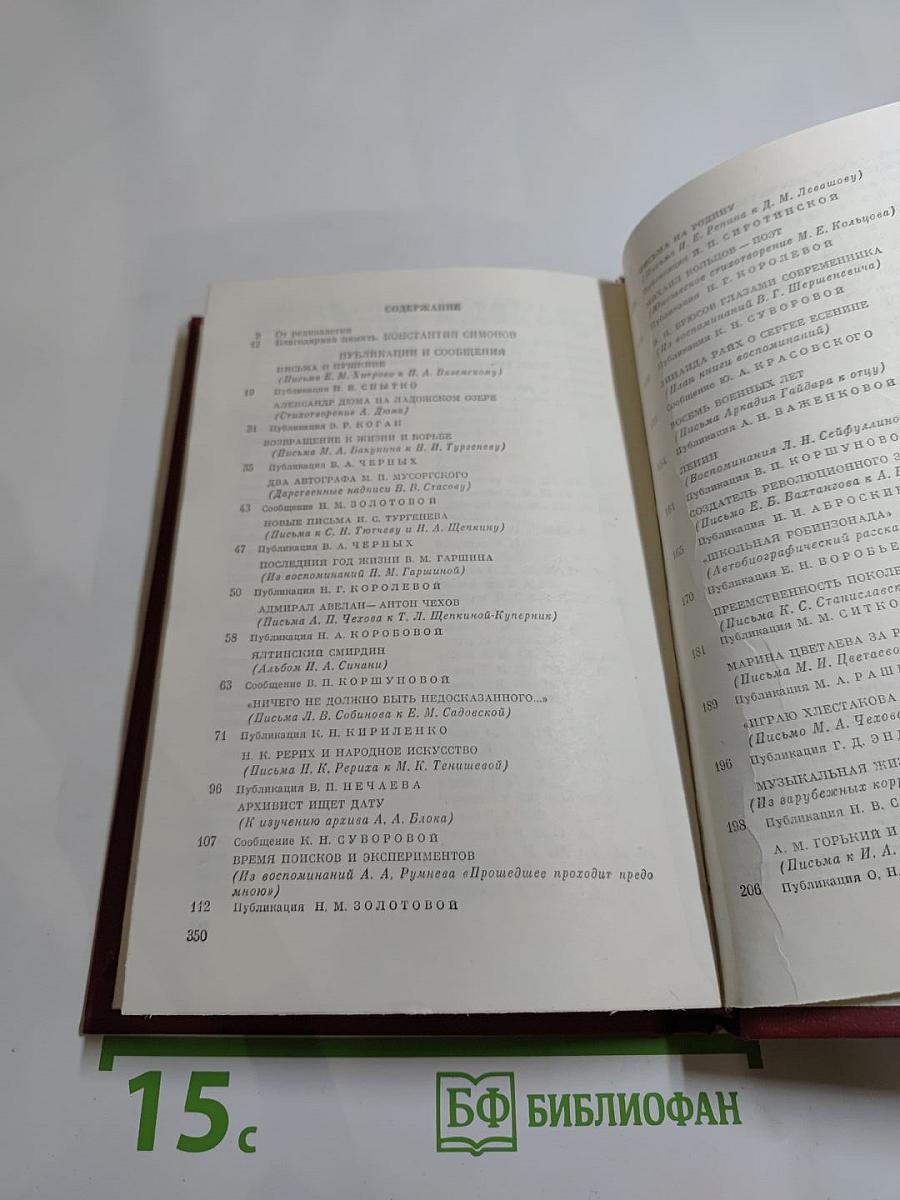 СОДЕРЖАНИЕ
9 От редколлегии
12 Благодарная память. КОНСТАНТИН СИМОНОВ
ПУБЛИКАЦИИ И СООБЩЕНИЯ
ПИСЬМА О ПУШКИНЕ
(Письма Е. М. Хитрово к П. А. Вяземскому)
19 Публикация Н. В. СНЫТКО
АЛЕКСАНДР ДЮМА НА ЛАДОЖСКОМ ОЗЕРЕ
(Стихотворение А. Дюма)
31 Публикация Э. Р. КОГАН
ВОЗВРАЩЕНИЕ К ЖИЗНИ И БОРЬБЕ
(Письма М. А. Бакунина к Н. И. Тургеневу)
35 Публикация В. А. ЧЕРНЫХ
ДВА АВТОГРАФА М. П. МУСОРГСКОГО
(Дарственные надписи В. В. Стасову)
43 Сообщение Н. М. ЗОЛОТОВОЙ
НОВЫЕ ПИСЬМА И. С. ТУРГЕНЕВА
(Письма к С. Н. Тютчеву и Н. А. Щепкину)
47 Публикация В. А. ЧЕРНЫХ
ПОСЛЕДНИЙ ГОД ЖИЗНИ В. М. ГАРШИНА
(Из воспоминаний Н. М. Гаршиной)
50 Публикация Н. Г. КОРОЛЕВОЙ
АДМИРАЛ АВЕЛАН — АНТОН ЧЕХОВ
(Письма А. П. Чехова к Т. Л. Щепкиной-Куперник)
58 Публикация Н. А. КОРОБОВОЙ
ЯЛТИНСКИЙ СМИРДИН
(Альбом И. А. Синани)
63 Сообщение В. П. КОРШУНОВОЙ
«НИЧЕГО НЕ ДОЛЖНО БЫТЬ НЕДОСКАЗАННОГО...»
(Письма Л. В. Собинова к Е. М. Садовской)
71 Публикация К. Н. КИРИЛЕНКО
Н. К. РЕРИХ И НАРОДНОЕ ИСКУССТВО
(Письма Н. К. Рериха к М. К. Тенишевой)
96 Публикация В. П. НЕЧАЕВА
АРХИВИСТ ИЩЕТ ДАТУ
(К изучению архива А. А. Блока)
107 Сообщение К. Н. СУВОРОВОЙ
ВРЕМЯ ПОИСКОВ И ЭКСПЕРИМЕНТОВ
(Из воспоминаний А. А. Румнева «Прошедшее проходит предо
мною»)
112 Публикация Н. М. ЗОЛОТОВОЙ
350
ПИСЬМА НА РОДИНУ
(Письма И. Е. Репина к Д. М. Левашову)
Публикация И. П. СИРОТИНСКОЙ
МИХАИЛ КОЛЬЦОВ — ПОЭТ
(Юношеское стихотворение М. Е. Кольцова)
Публикация Н. Г. КОРОЛЕВОЙ
В. Я. БРЮСОВ ГЛАЗАМИ СОВРЕМЕННИКА
(Из воспоминаний В. Г. Шершеневича)
Публикация К. Н. СУВОРОВОЙ
ЗИНАИДА РАЙХ О СЕРГЕЕ ЕСЕНИНЕ
(План книги воспоминаний)
Сообщение Ю. А. КРАСОВСКОГО
ВОСЕМЬ ВОЕННЫХ ЛЕТ
(Письма Аркадия Гайдара к отцу)
Публикация А. Н. ВАЖЕНКОВОЙ
ЛЕНИН
(Воспоминания Л. Н. Сейфуллино
Публикация В. П. КОРШУНОВО
СОЗДАТЕЛЬ РЕВОЛЮЦИОННОГО
161 (Письмо Е. Б. Вахтангова к А.
Публикация И. И. АБРОСКИ
165 «ШКОЛЬНАЯ РОБИНЗОНАДА»
(Автобиографический расска
Публикация Е. Н. ВОРОБЬЕ
170 ПРЕЕМСТВЕННОСТЬ ПОКОЛЕ
(Письма К. С. Станиславск
Публикация М. М. СИТКО
181 МАРИНА ЦВЕТАЕВА ЗА Р
(Письма М. И. Цветаево
189 Публикация М. А. РАШ
«ИГРАЮ ХЛЕСТАКОВА
(Письмо М. А. Чехова
196 Публикация Г. Д. ЭНД
МУЗЫКАЛЬНАЯ ЖИЗ
(Из зарубежных корр
198 Публикация Н. В. С
А. М. ГОРЬКИЙ И
(Письма к И. А.
206 Публикация О. Н.
15 с
БФ БИБЛИОФАН